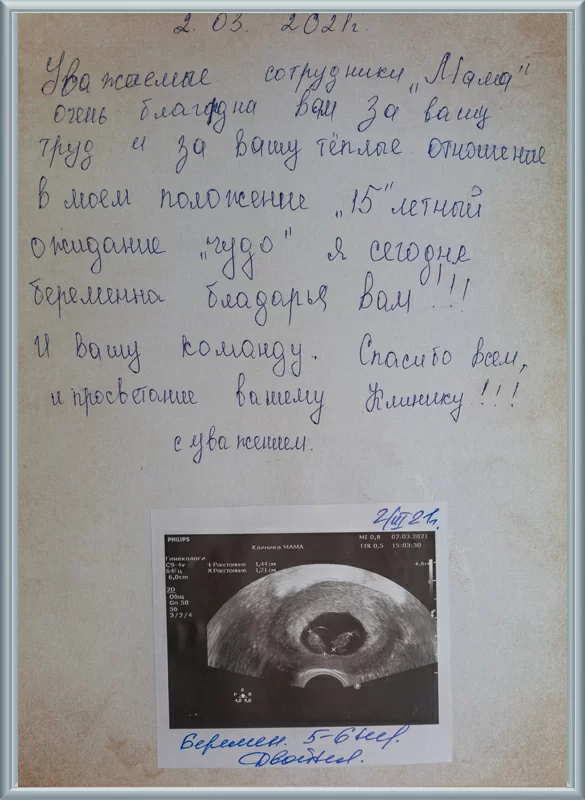 2. 03. 2021г.
Уважаемые сотрудники „Мама"
очень благодна вам за вашу
труд и за вашу тёплые отношение
в моем положение „15" летный
ожидание „чудо" я сегодня
беременна бладарья вам!!!
И вашу команду. Спасибо всем,
и просветание вашему Клинику!!!
с уважением.
2/III 21г.
PHILIPS
MI 0,8 02.03.2021
Клиника МАМА
TIS 0,5 15:03:30
Гинекологи
C9-4v
64Гц
6,0cm
+ Расстояние 1,44 см
× Расстояние 1,21 см
2D
Общ
Gn 50
56
3/2/4
Беремен. 5-6 нед.
Двойня.